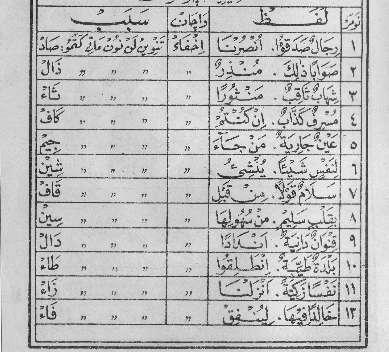 نومر لَفَظْ وَاچَانْ سَبَبْ
١ رِجَالٌ صَدَقُوْا. اُنْصُرْنَا اِخْفَاءْ تَنْوِيْن لَنْ نُوْن مَاتِيْ كَتَمُوْ: صَادْ
٢ صَوَابًا ذٰلِكَ. مُنْذِرٌ ,, ,, ,, ,, ذَالْ
٣ شِهَابٌ ثَاقِبٌ. مَنْثُوْرًا ,, ,, ,, ,, ثَاءْ
٤ مُسْرِفٌ كَذَّابٌ. اِنْ كُنْتُمْ ,, ,, ,, ,, كَافْ
٥ عَيْنٌ جَارِيَةٌ. مَنْ جَآءَ ,, ,, ,, ,, جِيْمْ
٦ لِنَفْسٍ شَيْئًا. يُنْشِئُ ,, ,, ,, ,, شِيْنْ
٧ سَلَامٌ قَوْلًا. مِنْ قَبْلُ ,, ,, ,, ,, قَافْ
٨ بِقَلْبٍ سَلِيْمٍ. مِنْ سُهُوْلِهَا ,, ,, ,, ,, سِيْنْ
٩ قِنْوَانٌ دَانِيَةٌ. اَنْدَادًا ,, ,, ,, ,, دَالْ
١٠ بَلْدَةٌ طَيِّبَةٌ. اِنْطَلَقُوْا ,, ,, ,, ,, طَاءْ
١١ نَفْسًا زَكِيَّةً. اَنْزَلْنَا ,, ,, ,, ,, زَاءْ
١٢ خَالِدًا فِيْهَا. لِيُنْفِقْ ,, ,, ,, ,, فَاءْ